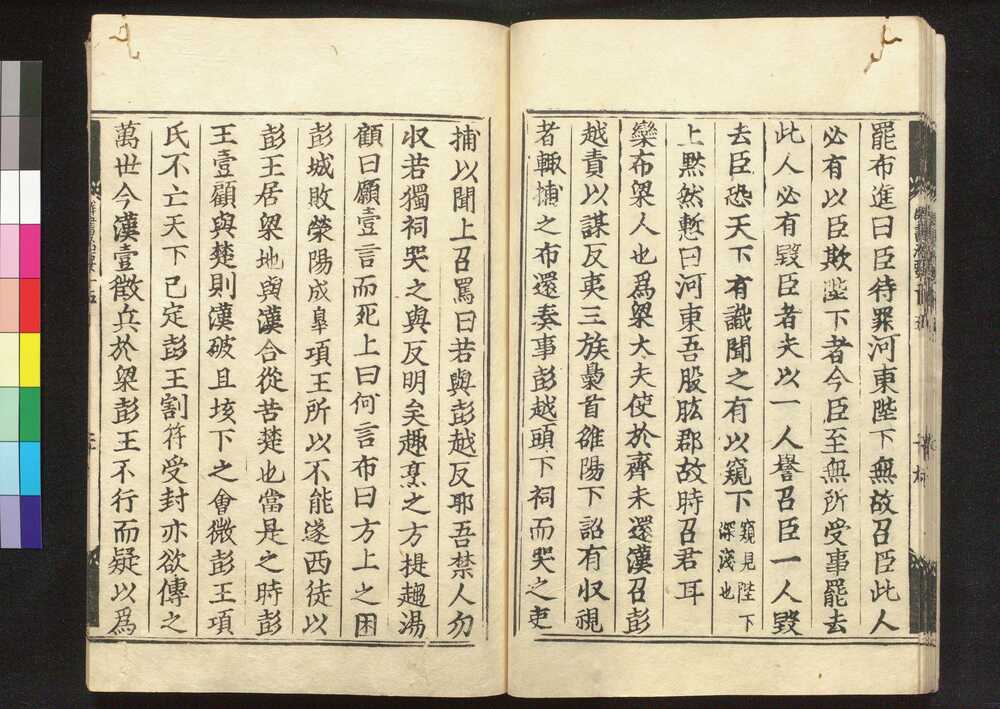 罷布進曰臣待罪河東陛下無故召臣此人
必有以臣欺陛下者今臣至無所受事罷去
此人必有毀臣者夫以一人譽召臣一人毀
去臣恐天下有識聞之有以窺下窺見陛下深淺也
上黙然慙曰河東吾股肱郡故時召君耳
欒布梁人也爲梁大夫使於齊未還漢召彭
越責以謀反夷三族梟首雒陽下詔有収視
者輙捕之布還奏事彭越頭下祠而哭之吏
捕以聞上召罵曰若與彭越反耶吾禁人勿
収若獨祠哭之與反明矣趣烹之方提趨湯
顧曰願壹言而死上曰何言布曰方上之困
彭城敗滎陽成皐項王所以不能遂西徒以
彭王居梁地與漢合從苦楚也當是之時彭
王壹顧與楚則漢破且垓下之會微彭王項
氏不亡天下已定彭王割符受封亦欲傳之
萬世今漢壹徵兵於梁彭王不行而疑以爲